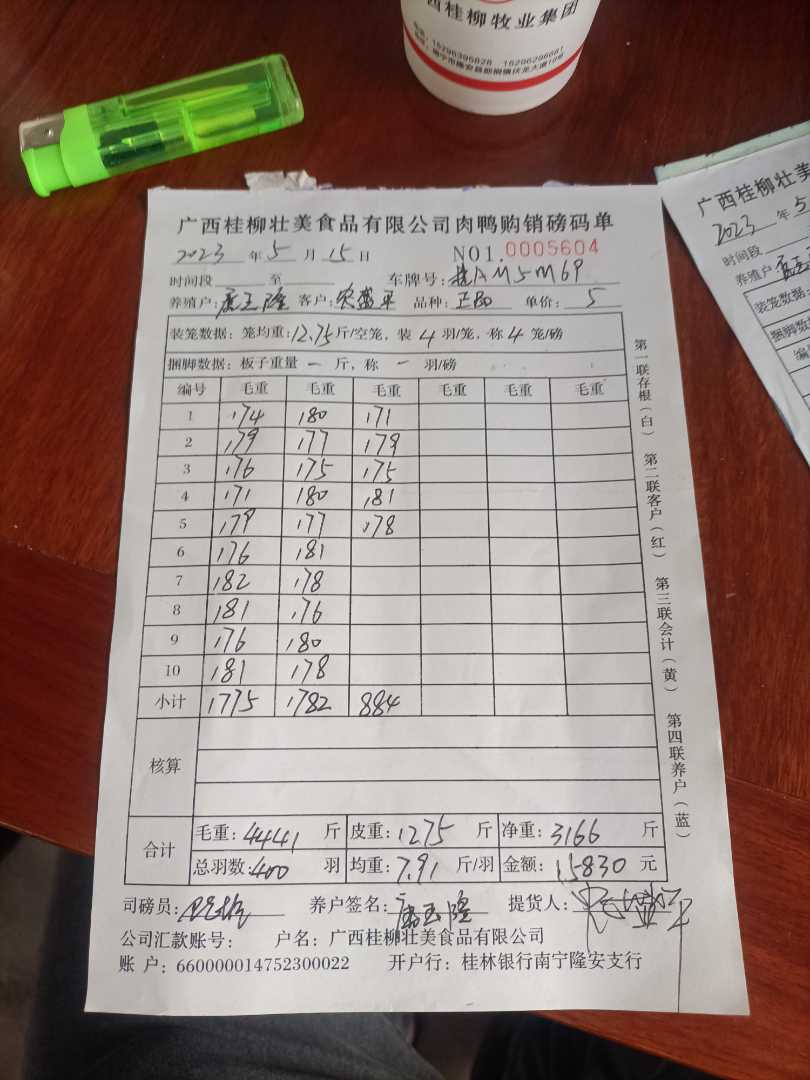 西桂柳牧业集团
广西桂柳壮美食品有限公司肉鸭购销磅码单
2023 年 5 月 15 日 NO1. 0005604
时间段 至 车牌号: 桂AM5M69
养殖户: 隆 客户: 农盛平 品种: 正Bo 单价: 5
装笼数据: 笼均重: 12.75 斤/空笼, 装 4 羽/笼, 称 4 笼/磅
捆脚数据: 板子重量 一 斤, 称 一 羽/磅
编号 毛重 毛重 毛重 毛重 毛重 毛重
1 174 180 171
2 179 177 179
3 176 175 175
4 171 180 181
5 179 177 178
6 176 181
7 182 178
8 181 176
9 176 180
10 181 178
小计 1775 1782 884
核算
合计
毛重: 4441 斤 皮重: 1275 斤 净重: 3166 斤
总羽数: 400 羽 均重: 7.91 斤/羽 金额: 15830 元
司磅员: 养户签名: 隆 提货人:
公司汇款账号: 户名: 广西桂柳壮美食品有限公司
账户: 660000014752300022 开户行: 桂林银行南宁隆安支行
第一联存根(白) 第二联客户(红) 第三联会计(黄) 第四联养户(蓝)
广西桂柳壮美
2023 年 5
时间段
养殖户
装笼数据:
捆脚数据
编号